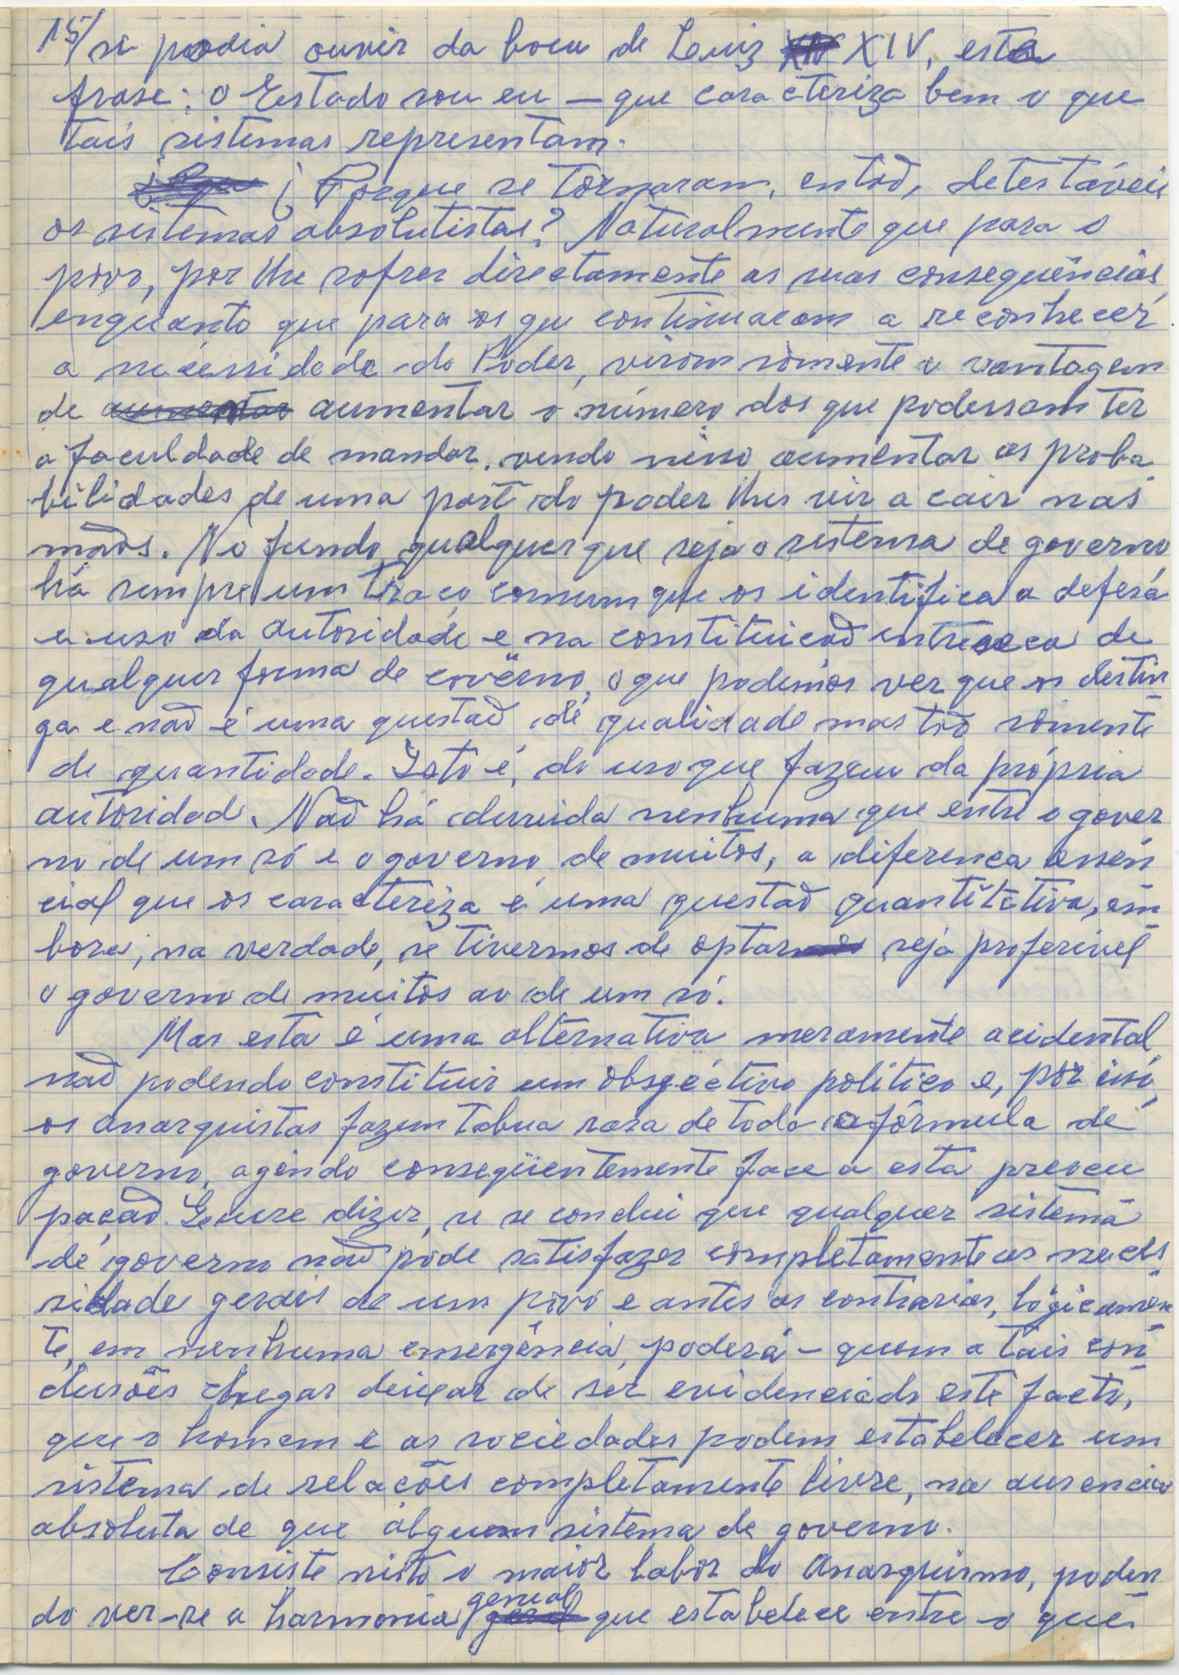 15/ se podia ouvir da boca de Luiz XIV, esta
frase: o Estado sou eu – que caracteriza bem o que
tais sistemas representam.
¿ Porque se tornaram, então, detestáveis
os sistemas absolutistas? Naturalmente que para o
povo, por lhe sofrer directamente as suas consequências,
enquanto que para os que continuaram a reconhecer
a necessidade do Poder, viram sòmente a vantagem
de aumentar o número dos que podessam ter
a faculdade de mandar, vendo nisso aumentar as proba
bilidades de uma parte do poder lhes vir a cair nas
mãos. No fundo, qualquer que seja o sistema de governo
há sempre um traço comum que os identifica a defesa
e uso da autoridade e na constituição intrinseca de
qualquer forma de govêrno, o que podemos ver que os distin
ga e não é uma questão de qualidade mas tão sòmente
de quantidade. Isto é, do uso que fazem da própria
autoridad. Não há duvida nenhuma que entre o gover
no de um só e o governo de muitos, a diferença essen
cial que os caracteriza é uma questão quantitativa, em
bora, na verdade, se tivermos de optar seja preferivel
o governo de muitos ao de um só.
Mas esta é uma alternativa meramente acidental
não podendo constituir um objéctivo político e, por isso,
os anarquistas fazem tabua rasa de toda a fórmula de
governo, agindo conseqüentemente face a esta preocu
pação. Quere dizer, se se conclui que qualquer sistema
de governo não pode satisfazer completamente as neces
sidade gerais de um povo e antes as contrarias, lógicamen
te, em nenhuma emergência, poderá – quem a tais con
clusões chegar deixar de ser evidenciado este facto,
que o homem e as sociedades podem estabelecer um
sistema de relações completamente livre, na ausencia
absoluta de que algum sistema de governo.
Consiste nisto o maior labor do Anarquismo, poden
do ver-se a harmonia genial que estabelece entre o que